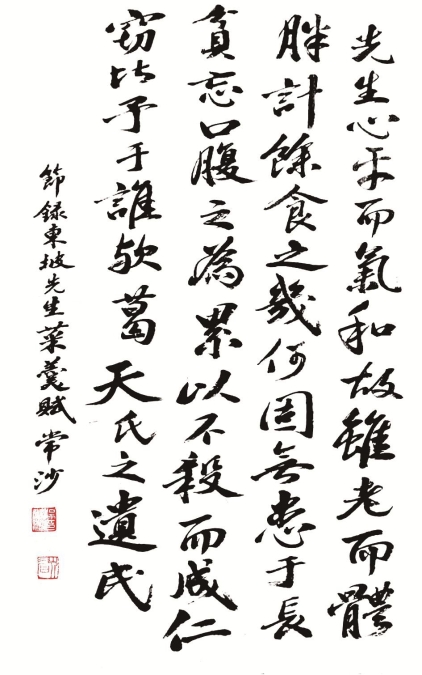 先生心平而氣和故雖老而體
胖計餘食之幾何固無患于長
貧忘口腹之為累以不殺而成仁
竊比予于誰歟葛天氏之遺民
節録東坡先生菜羹賦 常沙